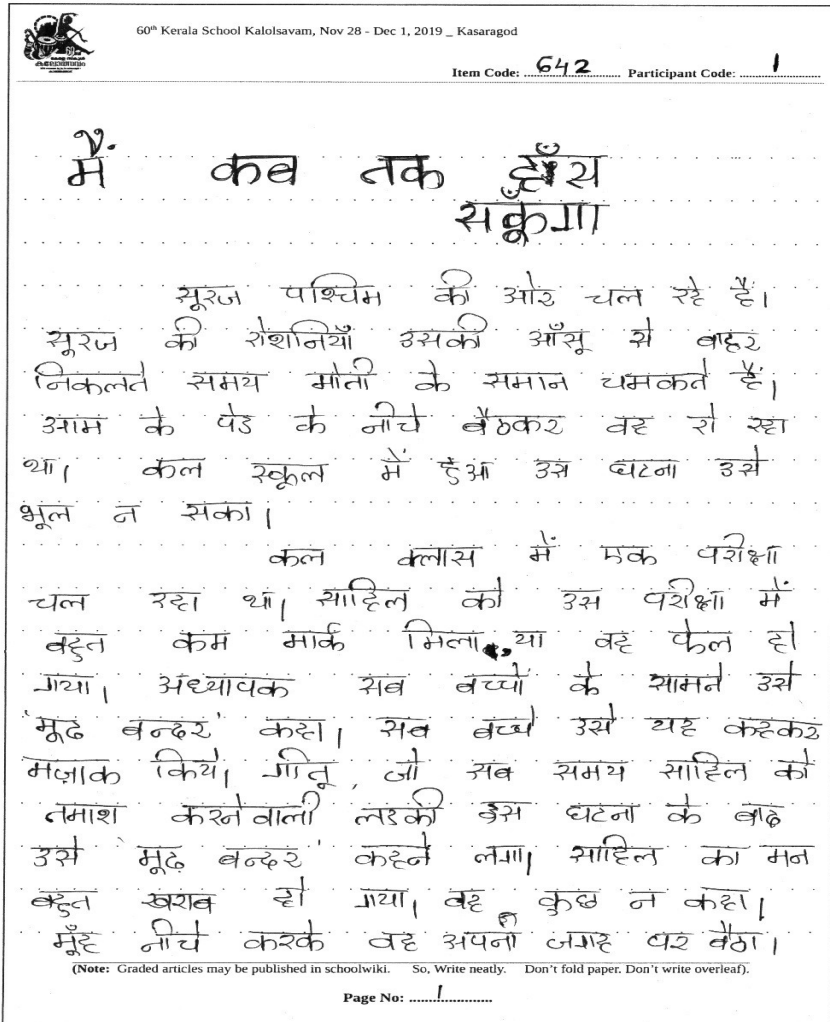 60th Kerala School Kalolsavam, Nov 28 - Dec 1, 2019 _ Kasaragod
Item Code: 642 Participant Code: 1
मैं कब तक हँस
सकूँगा
सूरज पश्चिम की ओर चल रहे हैं।
सूरज की रोशनियाँ उसकी आँसू से बाहर
निकलते समय मोती के समान चमकते हैं।
आम के पेड के नीचे बैठकर वह रो रहा
था। कल स्कूल में हुआ उस घटना उसे
भूल न सका।
कल क्लास में एक परीक्षा
चल रहा था। साहिल को उस परीक्षा में
बहुत कम मार्क मिला, या वह फेल हो
गया। अध्यापक सब बच्चों के सामने उसे
'मूढ बन्दर' कहा। सब बच्चे उसे यह कहकर
मज़ाक किये। गीतू, जो सब समय साहिल को
तमाश करनेवाली लडकी इस घटना के बाद
उसे 'मूढ बन्दर' कहने लगा। साहिल का मन
बहुत खराब हो गया। वह कुछ न कहा।
मूँह नीचे करके वह अपनी जगह पर बैठा।
(Note: Graded articles may be published in schoolwiki. So, Write neatly. Don't fold paper. Don't write overleaf).
Page No: 1